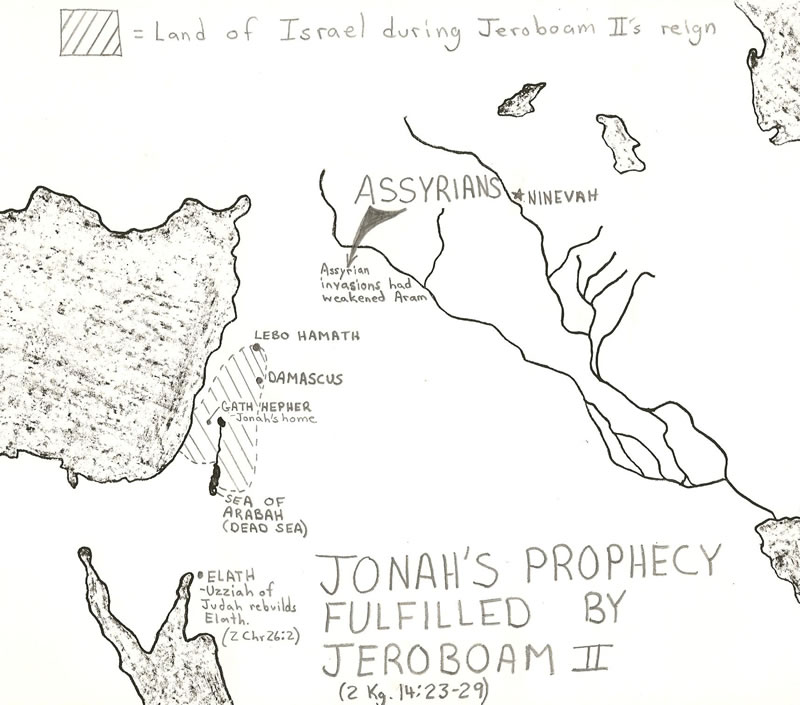 = Land of Israel during Jeroboam II's reign
ASSYRIANS
NINEVAH
Assyrian
invasions had
weakened Aram
LEBO HAMATH
DAMASCUS
GATH HEPHER
-Jonah's home
SEA OF
ARABAH
(DEAD SEA)
ELATH
-Uzziah of
Judah rebuilds
Elath.
(2 Chr 26:2)
JONAH'S PROPHECY
FULFILLED BY
JEROBOAM II
(2 Kg. 14:23-29)